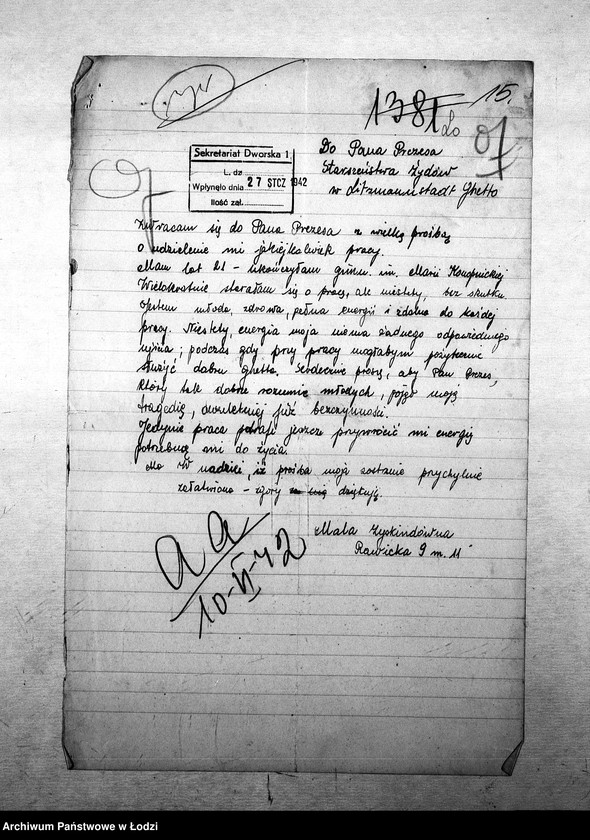 1381
15.
Sekretariat Dworska 1
L. dz
Wpłynęło dnia 27 STCZ 1942
Ilość zał.
Do Pana Prezesa
Starszeństwa Żydów
w Litzmannstadt Ghetto
Zwracam się do Pana Prezesa z wielką prośbą
o udzielenie mi jakiejkolwiek pracy.
Mam lat 21 - ukończyłam gimn. im. Marii Konopnickiej
Wielokrotnie starałam się o pracę, ale niestety, bez skutku.
Jestem młoda, zdrowa, pełna energii i zdolna do każdej
pracy. Niestety, energia moja niema żadnego odpowiedniego
ujścia; podczas gdy przy pracy mogłabym pożytecznie
służyć dobru ghetta. Serdecznie proszę, aby Pan Prezes,
który tak dobrze rozumie młodych, pojął moją
tragedię, dwuletniej już bezczynności.
Jedynie praca potrafi jeszcze przywrócić mi energię
potrzebną mi do życia.
W nadziei, iż prośba moja zostanie przychylnie
załatwiona - zgóry dziękuję.
Mala Zyskindówna
Rawicka 9 m. 11
a a
10-VI-42
Archiwum Państwowe w Łodzi